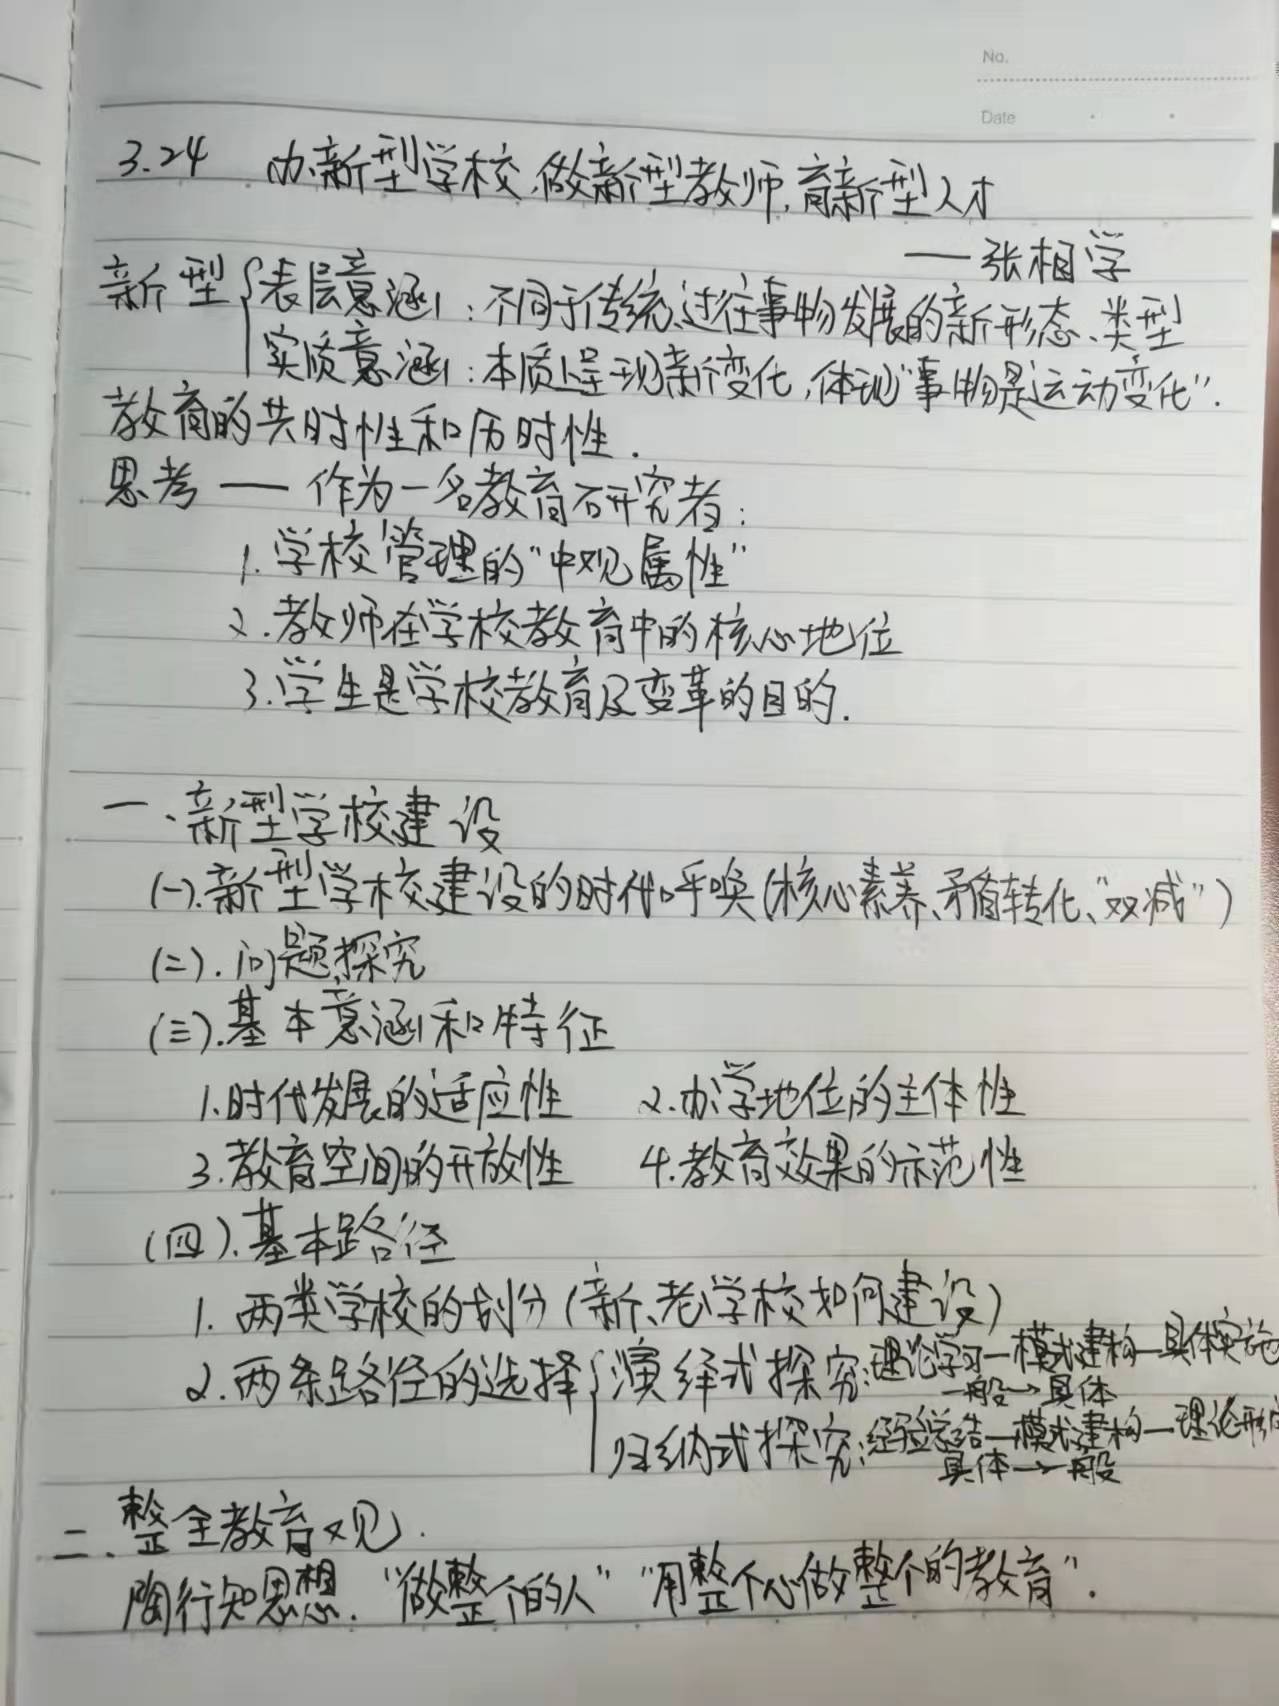 No.
Date
3.24 办新型学校,做新型教师,育新型人才
——张相学
新型{表层意涵:不同于传统、过往事物发展的新形态、类型
实质意涵:本质呈现新变化,体现“事物是运动变化”.
教育的共时性和历时性.
思考——作为一名教育研究者:
1.学校管理的“中观属性”
2.教师在学校教育中的核心地位
3.学生是学校教育及变革的目的.
一、新型学校建设
(一).新型学校建设的时代呼唤(核心素养、矛盾转化、“双减”)
(二).问题探究
(三).基本意涵和特征
1.时代发展的适应性 2.办学地位的主体性
3.教育空间的开放性 4.教育效果的示范性
(四).基本路径
1.两类学校的划分(新、老学校如何建设)
2.两条路径的选择{演绎式探究:理论学习—模式建构—具体实施
一般→具体
归纳式探究:经验总结—模式建构—理论形成
具体→一般
二、整全教育观.
陶行知思想.“做整个的人”“用整个心做整个的教育”.